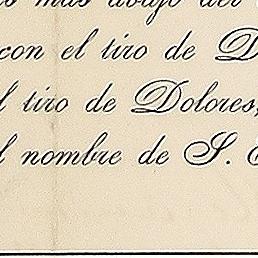 más abajo del
con el tiro de D
l tiro de Dolores,
l nombre de S.